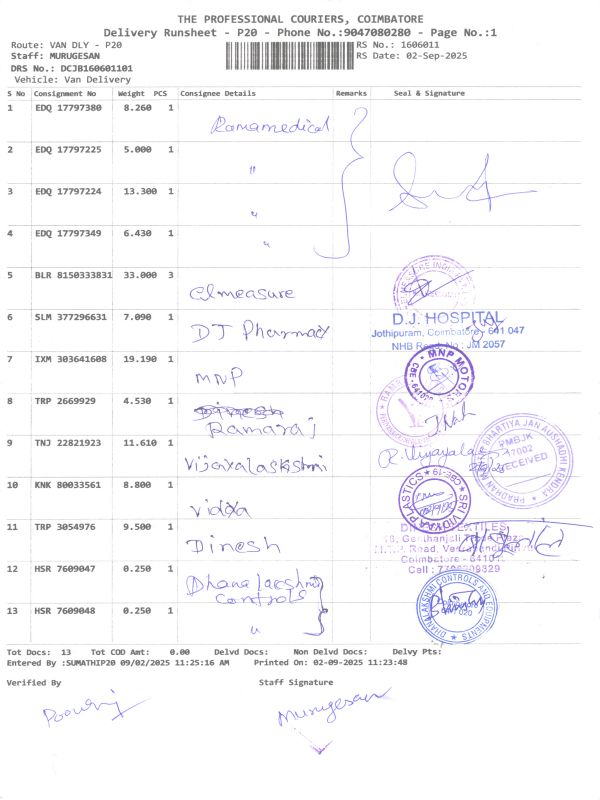 THE PROFESSIONAL COURIERS, COIMBATORE
Delivery Runsheet - P20 - Phone No.:9047080280 - Page No.:1
Route: VAN DLY - P20
RS No.: 1606011
Staff: MURUGESAN
RS Date: 02-Sep-2025
DRS No.: DCJB160601101
Vehicle: Van Delivery
S No Consignment No Weight PCS Consignee Details Remarks Seal & Signature
1 EDQ 17797380 8.260 1 Ramamedical
2 EDQ 17797225 5.000 1 "
3 EDQ 17797224 13.300 1 "
4 EDQ 17797349 6.430 1 "
5 BLR 8150333831 33.000 3 Elmeasure
6 SLM 377296631 7.090 1 DJ Pharmacy
D.J. HOSPITAL
Jothipuram, Coimbatore - 641 047
NHB Regd. No : JM 2057
7 IXM 303641608 19.190 1 MNP
MNP MOTORS
8 TRP 2669929 4.530 1 Dinesh
Ramaraj
9 TNJ 22821923 11.610 1 Vijayalaskshmi
PRADHAN MANTRI BHARTIYA JAN AUSHADHI KENDRA
PMBJK
RECEIVED
10 KNK 80033561 8.800 1 Vidya
SRI VIDYAA PLASTICS CBE-19
11 TRP 3054976 9.500 1 Dinesh
12 HSR 7609047 0.250 1 Dhanalakshmi
Controls
13 HSR 7609048 0.250 1 "
DHANALAKSHMI CONTROLS AND EQUIPMENTS
Tot Docs: 13 Tot COD Amt: 0.00 Delvd Docs: Non Delvd Docs: Delvy Pts:
Entered By :SUMATHIP20 09/02/2025 11:25:16 AM Printed On: 02-09-2025 11:23:48
Verified By Staff Signature
Murugesan